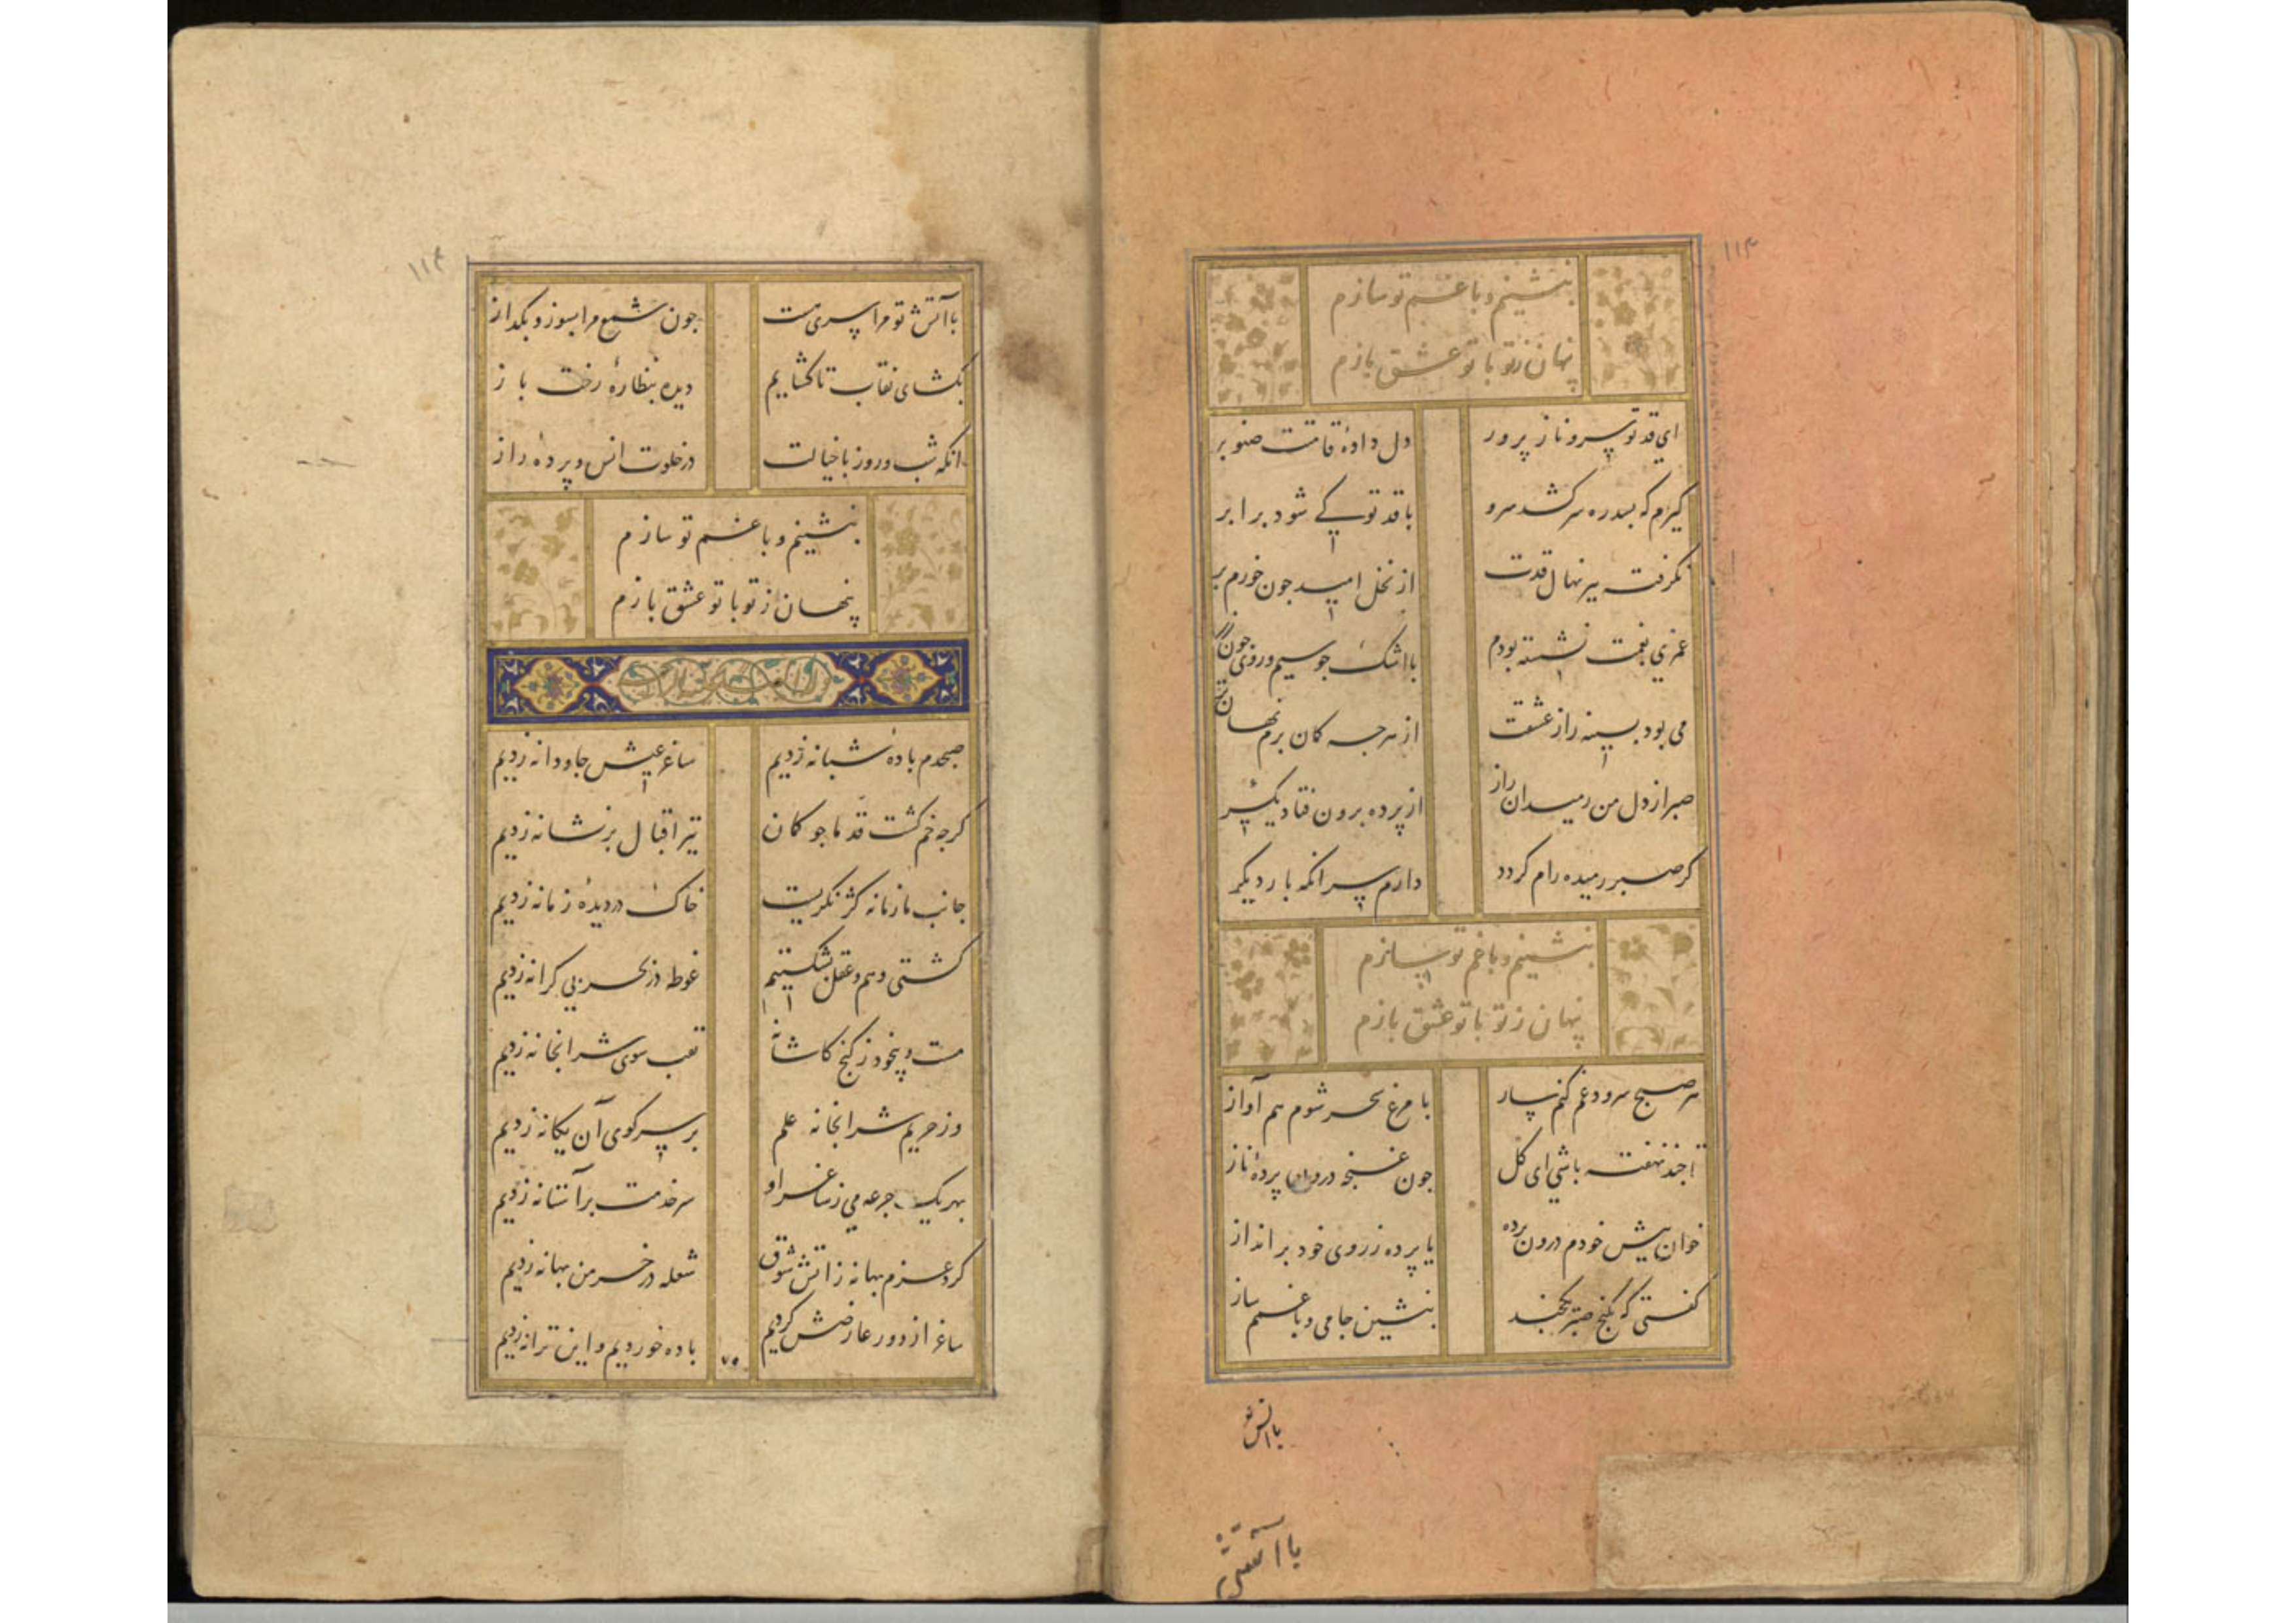 ۱۱۳
بنشینم و با غم تو سازم
پنهان ز تو با تو عشق بازم
ای قد تو سرو ناز پرور
دل داده قامتت صنوبر
کیرم که بسدره سر کشد سرو
با قد تو کی شود برابر
نکرفته بر نهال قدت
از نخل امید جون خورم بر
عمری بغمت نشسته بودم
با اشک جو سیم و روی جون زر
می بود بسینه راز عشقت
از هرجه کمان برم نهان تر
صبر از دل من رمید ان راز
از پرده برون فتاد یکسر
کر صبر رمیده رام کردد
دارم سر انکه بار دیکر
بنشینم و با غم تو سازم
پنهان ز تو با تو عشق بازم
هر صبح سرود غم کنم ساز
با مرغ سحر شوم هم آواز
تا جند نهفته باشی ای کل
جون غنجه درون پرده ناز
خوان پیش خودم درون پرده
یا پرده ز روی خود برانداز
کفتی که بکنج صبر یکجند
بنشین جامی و با غمم ساز
باآتش تو
باآتش
۱۱۴
با آتش تو مرا سری هست
جون شمع مرا بسوز و بکداز
بکشای نقاب تا کشایم
دیده بنظاره رخت باز
انکه شب و روز با خیالت
در خلوت انس و پرده راز
بنشینم و با غم تو سازم
پنهان ز تو با تو عشق بازم
صبحدم باده شبانه زدیم
ساغر عیش جاودانه زدیم
کرجه خم کشت قد ما جو کمان
تیر اقبال بر نشانه زدیم
جانب ما زمانه کژ نکریست
خاک در دیده زمانه زدیم
کشتی وهم و عقل بشکستیم
غوطه در بحر بی کرانه زدیم
مست و بیخود ز کنج کاشانه
نقب سوی شرابخانه زدیم
وز حریم شرابخانه علم
بر سر کوی آن یکانه زدیم
بهر یک جرعه می ز ساغر او
سر خدمت بر آستانه زدیم
کرد عزم بهانه ز اتش شوق
شعله در خرمن بهانه زدیم
ساغر از دور عارضش کردیم
باده خوردیم و این ترانه زدیم
۷۵